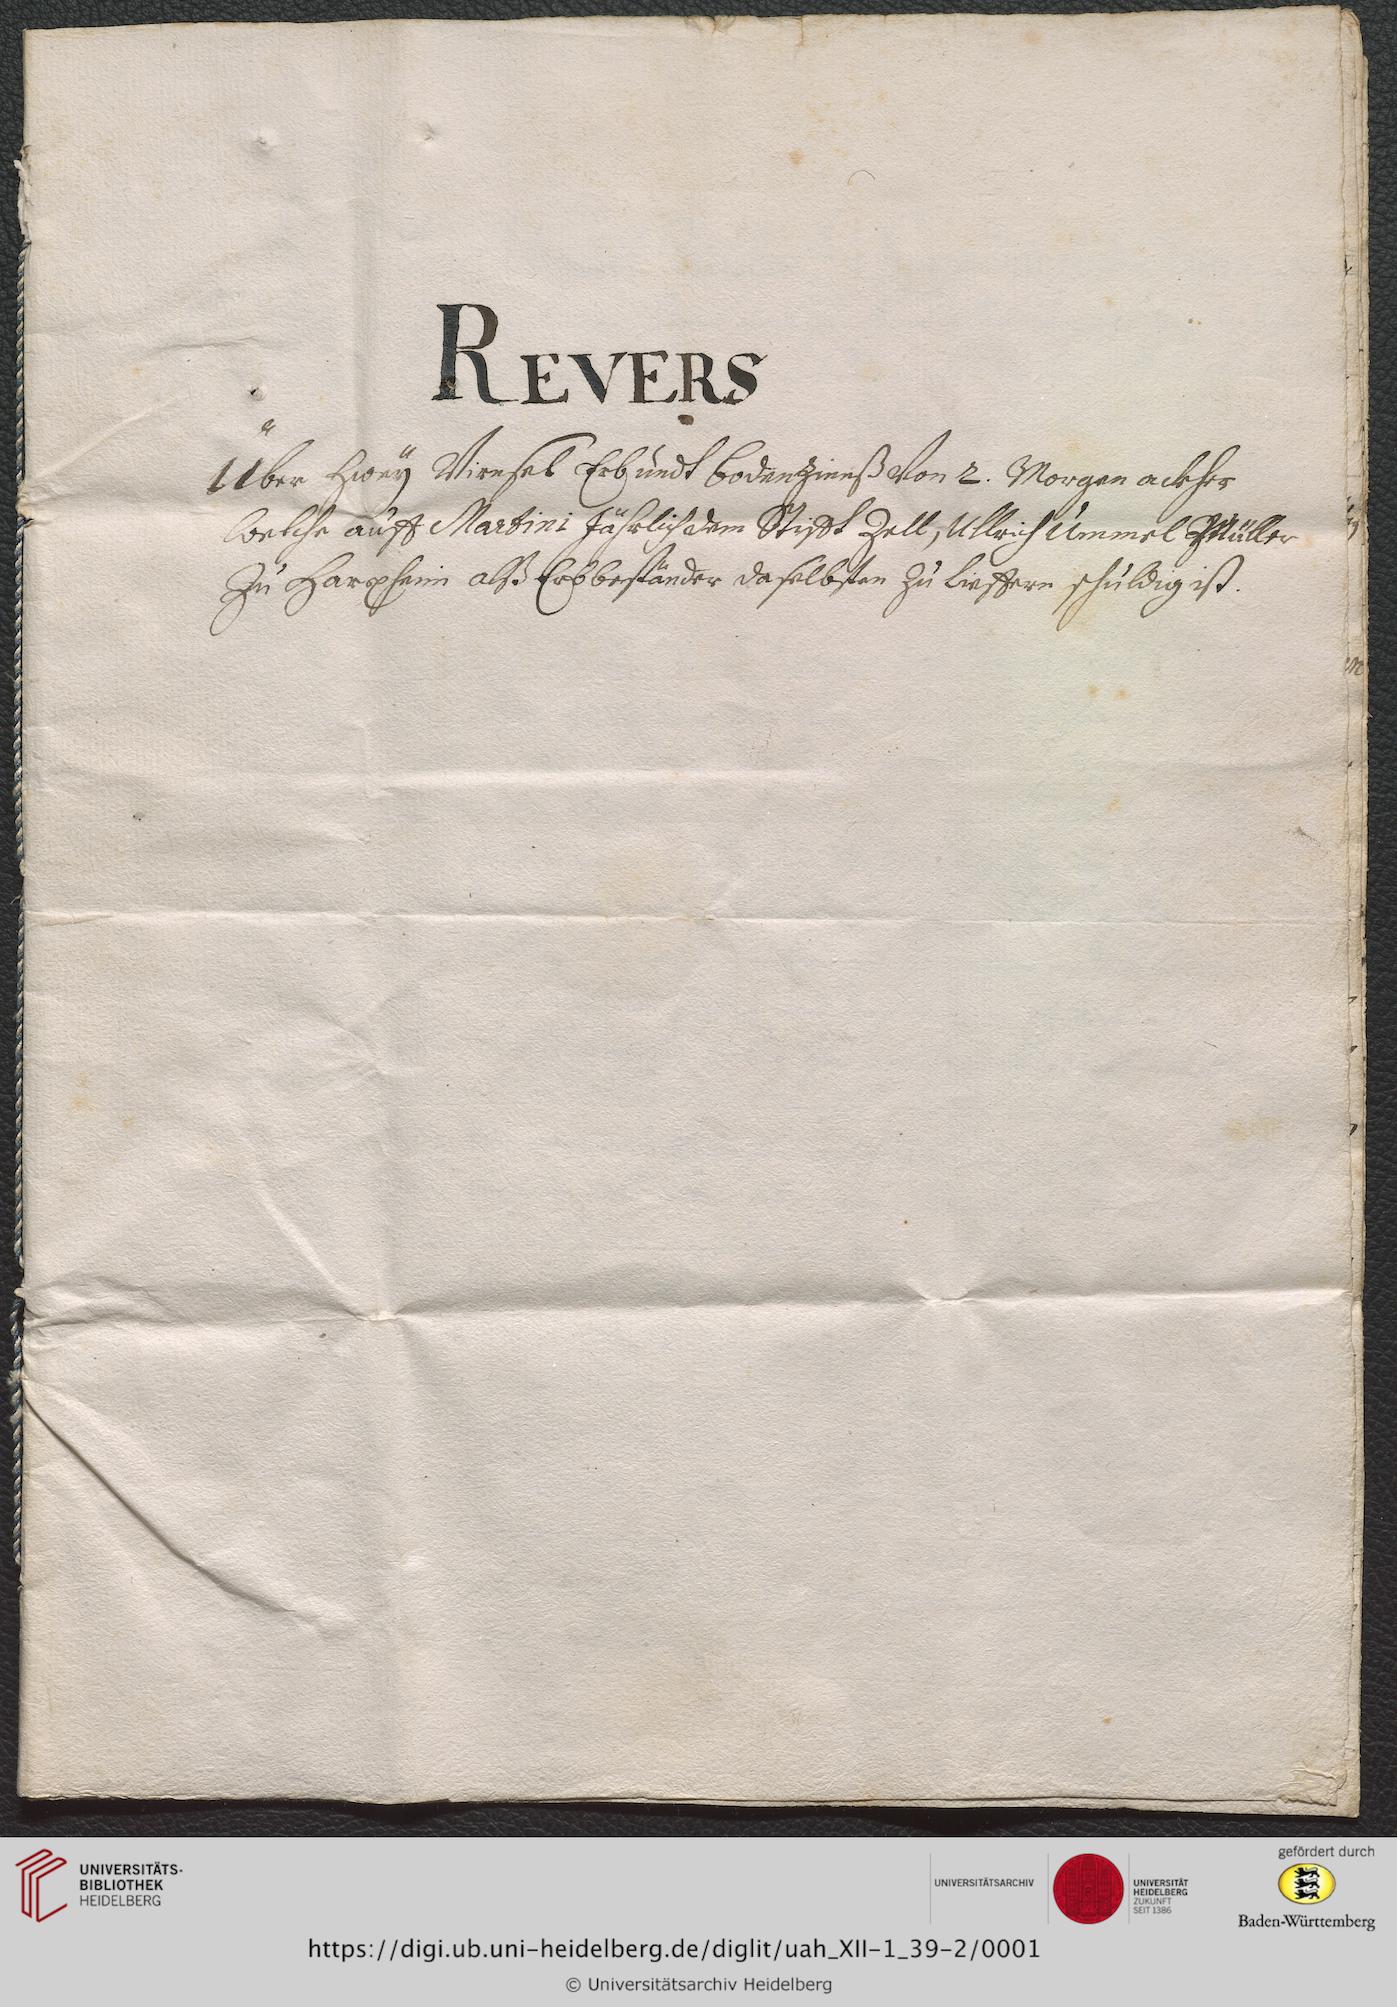 REVERS
Über Zwey Virnsel Erb undt bodenzinnß von 2. Morgen ackher
welche auff Martini Jährlich dem Stifft Zell, Ullrich Ummel Müller
zu Harxheim alß Erbbeständer daselbsten zu lieffern schuldig ist.
UNIVERSITÄTS-
BIBLIOTHEK
HEIDELBERG
UNIVERSITÄTSARCHIV
UNIVERSITÄT
HEIDELBERG
ZUKUNFT
SEIT 1386
gefördert durch
Baden-Württemberg
https://digi.ub.uni-heidelberg.de/diglit/uah_XII-1_39-2/0001
© Universitätsarchiv Heidelberg